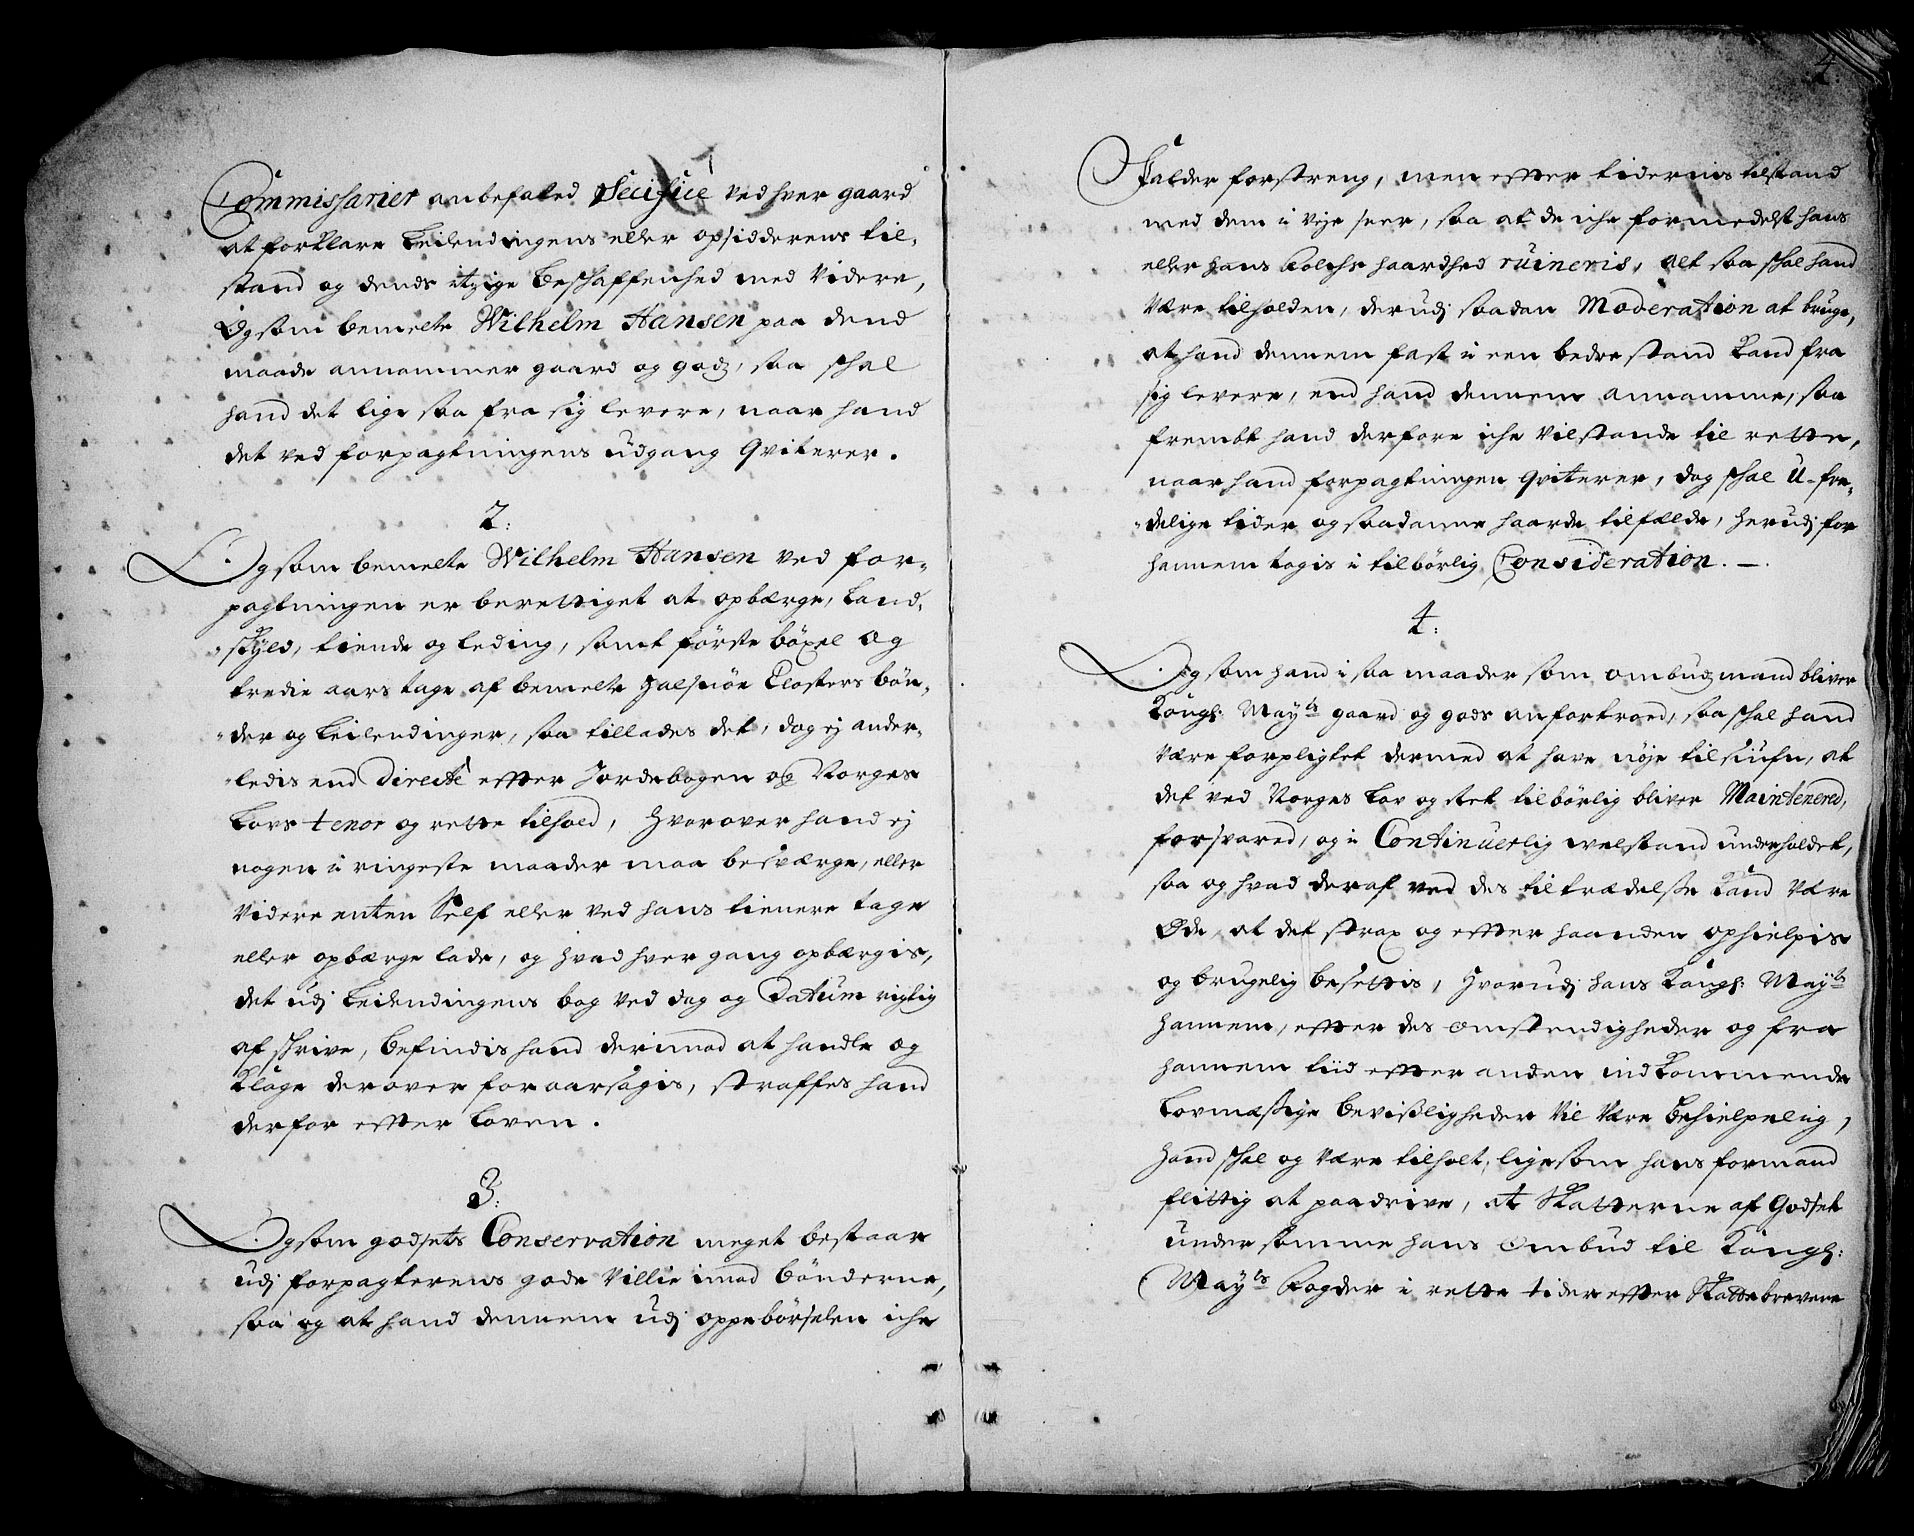 Commissarier anbefaled Specificè ved hver gaard
at forklare Leilendingens eller opsidderens til-
stand og dends itzige beskaffenhed med videre,
Og som bemelte Wilhelm Hansen paa dend
maade annammer gaard og godz, saa skal
hand det lige saa fra sig levere, naar hand
det ved forpagtningens udgang qviterer.
2:
Og som bemelte Wilhelm Hansen ved for-
pagtningen er berettiget at opbærge, Land-
skyld, tiende og leding, samt første böxel og
tredie aars tage af bemelte Halsnöe Closters bön-
der og Leilendinger, saa tillades det, dog ej ander-
ledis end directè effter Jordebogen og Norges
Lovs tenor og rette tilhold, Hvorover hand ej
nogen i ringeste maader maa besværge, eller
videre enten Self eller ved hans tienere tage
eller opbærge lade, og hvad hver gang opbærgis,
det udj Leilendingens bog ved dag og Datum rigtig
afskrive, befindis hand derimod at handle og
klage derover foraarsagis, straffes hand
derfor effter Loven.
3:
Og som godsets Conservation meget bestaar
udj forpagterens gode Villie imod bönderne,
saa og at hand dennem udj oppebörselen iche
4
Falder forstreng, men effter tidernis tilstand
med dem i vije seer, saa at de iche formedelst hans
eller hans Folchs haardhed ruineris, alt saa skal hand
være tilholden, derudj saadan Moderation at bruge,
at hand dennem fast i een bedre stand kand fra
sig levere, end hand dennem annamme, saa
fremt hand derfore iche vil stande til rette,
naar hand forpagtningen qviterer, dog skal U-fre-
delige tider og saadanne haarde tilfælde, herudj for
hannem tagis i tilbörlig Consideration.
4:
Og som hand i saa maader som ombudzmand bliver
Kongl: Mayts gaard og gods anfortroed, saa skal hand
være forpligtet dermed at have nöje tilsiufn, at
det ved Norges Lov og ret tilbörlig bliver Maintenered,
forsvared, og i Continuerlig welstand underholdet,
saa og hvad deraf ved des tiltrædelse kand være
Öde, at det strax og effter haanden ophielpis
og brugelig besettis, Hvorudj hans Kongl: Mayts
hannem, effter des omstendigheder og fra
hannem tiid effter anden indkommende
Lovmæssige bevisligheder vil være behielpelig,
Hand skal og være tilholt, ligesom hans formand
flittig at paadrive, at Skatterne af Godset
under samme hans Ombud til Kongl:
Mayts Fogder i rette tider effter Skattebrevene